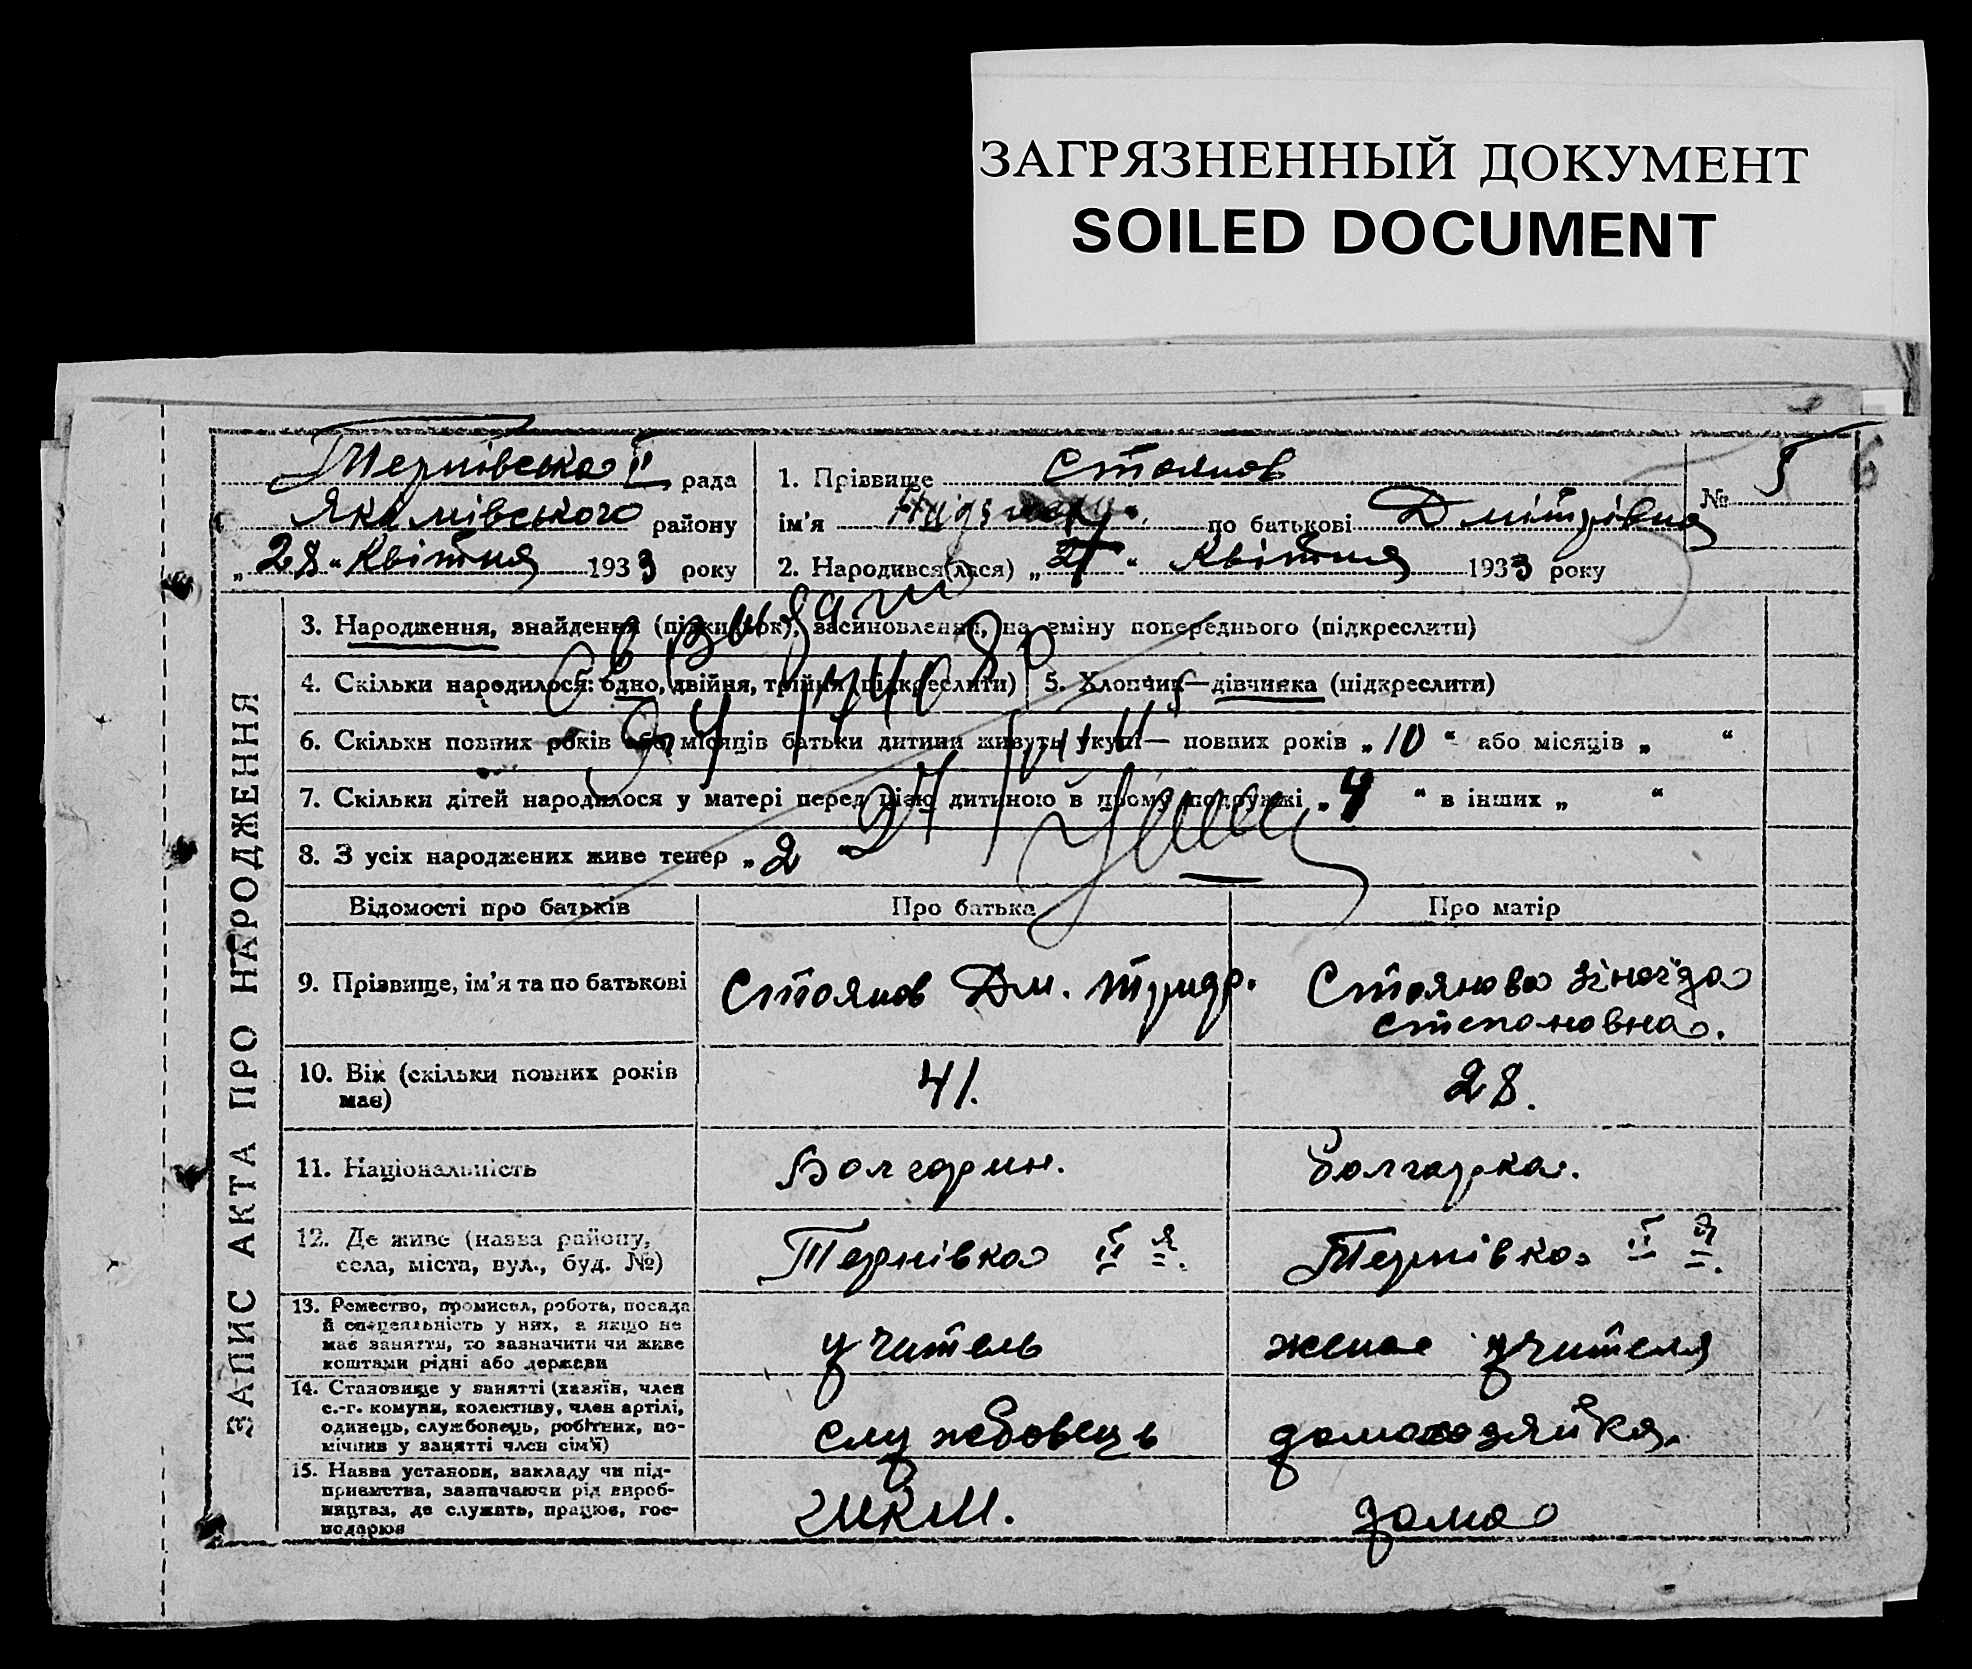 ЗАГРЯЗНЕННЫЙ ДОКУМЕНТ
SOILED DOCUMENT
Тернівська II рада
Якимівського району
„28“ Квітня 1933 року
1. Прізвище Стоянов
ім'я по батькові Дмітрівна
№ 5
6
2. Народився(лася) „ “ Квітня 1933 року
ЗАПИС АКТА ПРО НАРОДЖЕННЯ
3. Народження, знайдення (підкидьок), засиновлення, на зміну попереднього (підкреслити)
4. Скільки народилося: одно, двійня, трійня (підкреслити)
5. Хлопчик—дівчинка (підкреслити)
6. Скільки повних років або місяців батьки дитини живуть укупі— повних років „10“ або місяців „ “
7. Скільки дітей народилося у матері перед цією дитиною в цьому подружжі „4“ в інших „ “
8. З усіх народжених живе тепер „2
Відомості про батьків Про батька Про матір
9. Прізвище, ім'я та по батькові Стоянов Дм. Стоянова Зінаїда
Степановна.
10. Вік (скільки повних років 41. 28.
має)
11. Національність Болгарин. болгарка.
12. Де живе (назва району, Тернівка II я. Тернівка II я.
села, міста, вул., буд. №)
13. Ремество, промисел, робота, посада
й спеціяльність у них, а якщо не
має заняття, то зазначити чи живе
коштами рідні або держави
учитель жена учителя
14. Становище у занятті (хазяїн, член
с.-г. комуни, колективу, член артілі,
одинець, службовець, робітник, по-
мічник у занятті член сім'ї)
службовець домохозяйка.
15. Назва установи, закладу чи під-
приємства, зазначаючи рід вироб-
ництва, де служить, працює, гос-
подарює
ШКМ. дома